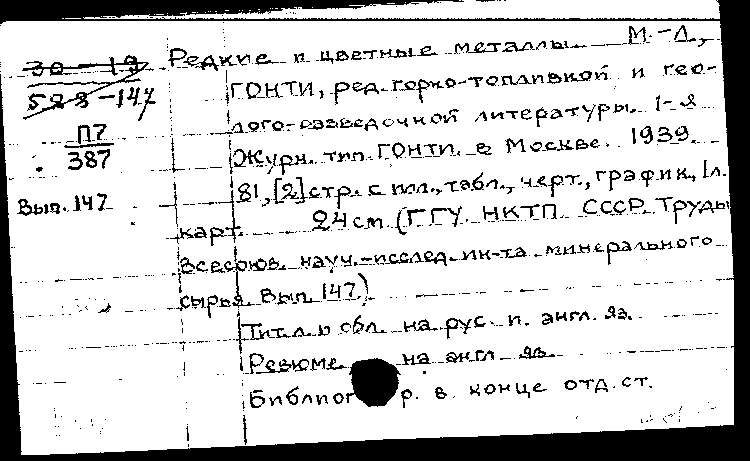 30-19 Редкие и цветные металлы. М.-Л.,
528-147 ГОНТИ, ред. горно-топливной и гео-
П7 лого-разведочной литературы. 1-я
387 Журн. тип. ГОНТИ. в Москве. 1939.
Вып. 147 81, [2] стр. с илл., табл., черт., график, 1 л.
карт. 24 см. (ГГУ. НКТП. СССР. Труды
Всесоюз. науч.-исслед. ин-та минерального
сырья. Вып. 147.)
Тит. л. и обл. на рус. и. англ. яз.
Резюме на англ. яз.
Библиог р. в. конце отд. ст.